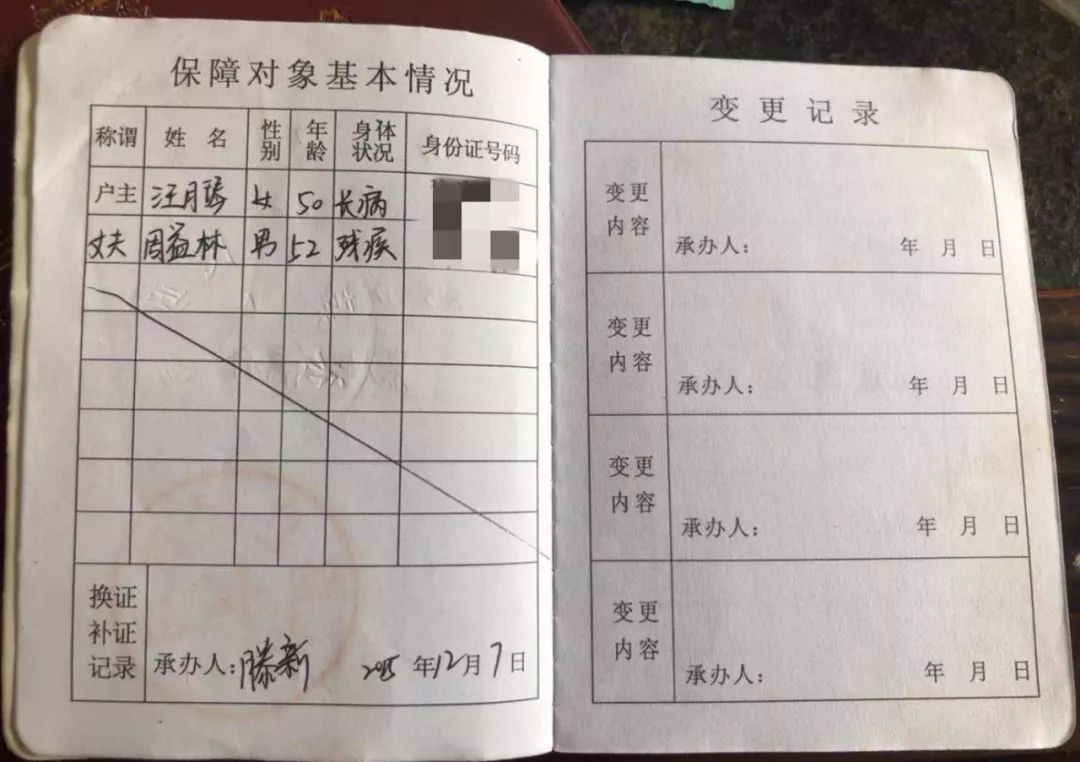 保障对象基本情况
称谓 姓名 性别 年龄 身体状况 身份证号码
户主 汪月 女 50 长病
丈夫 周益林 男 52 残疾
换证补证记录 承办人:滕新 2015年12月7日
变更记录
变更内容
承办人: 年 月 日
变更内容
承办人: 年 月 日
变更内容
承办人: 年 月 日
变更内容
承办人: 年 月 日